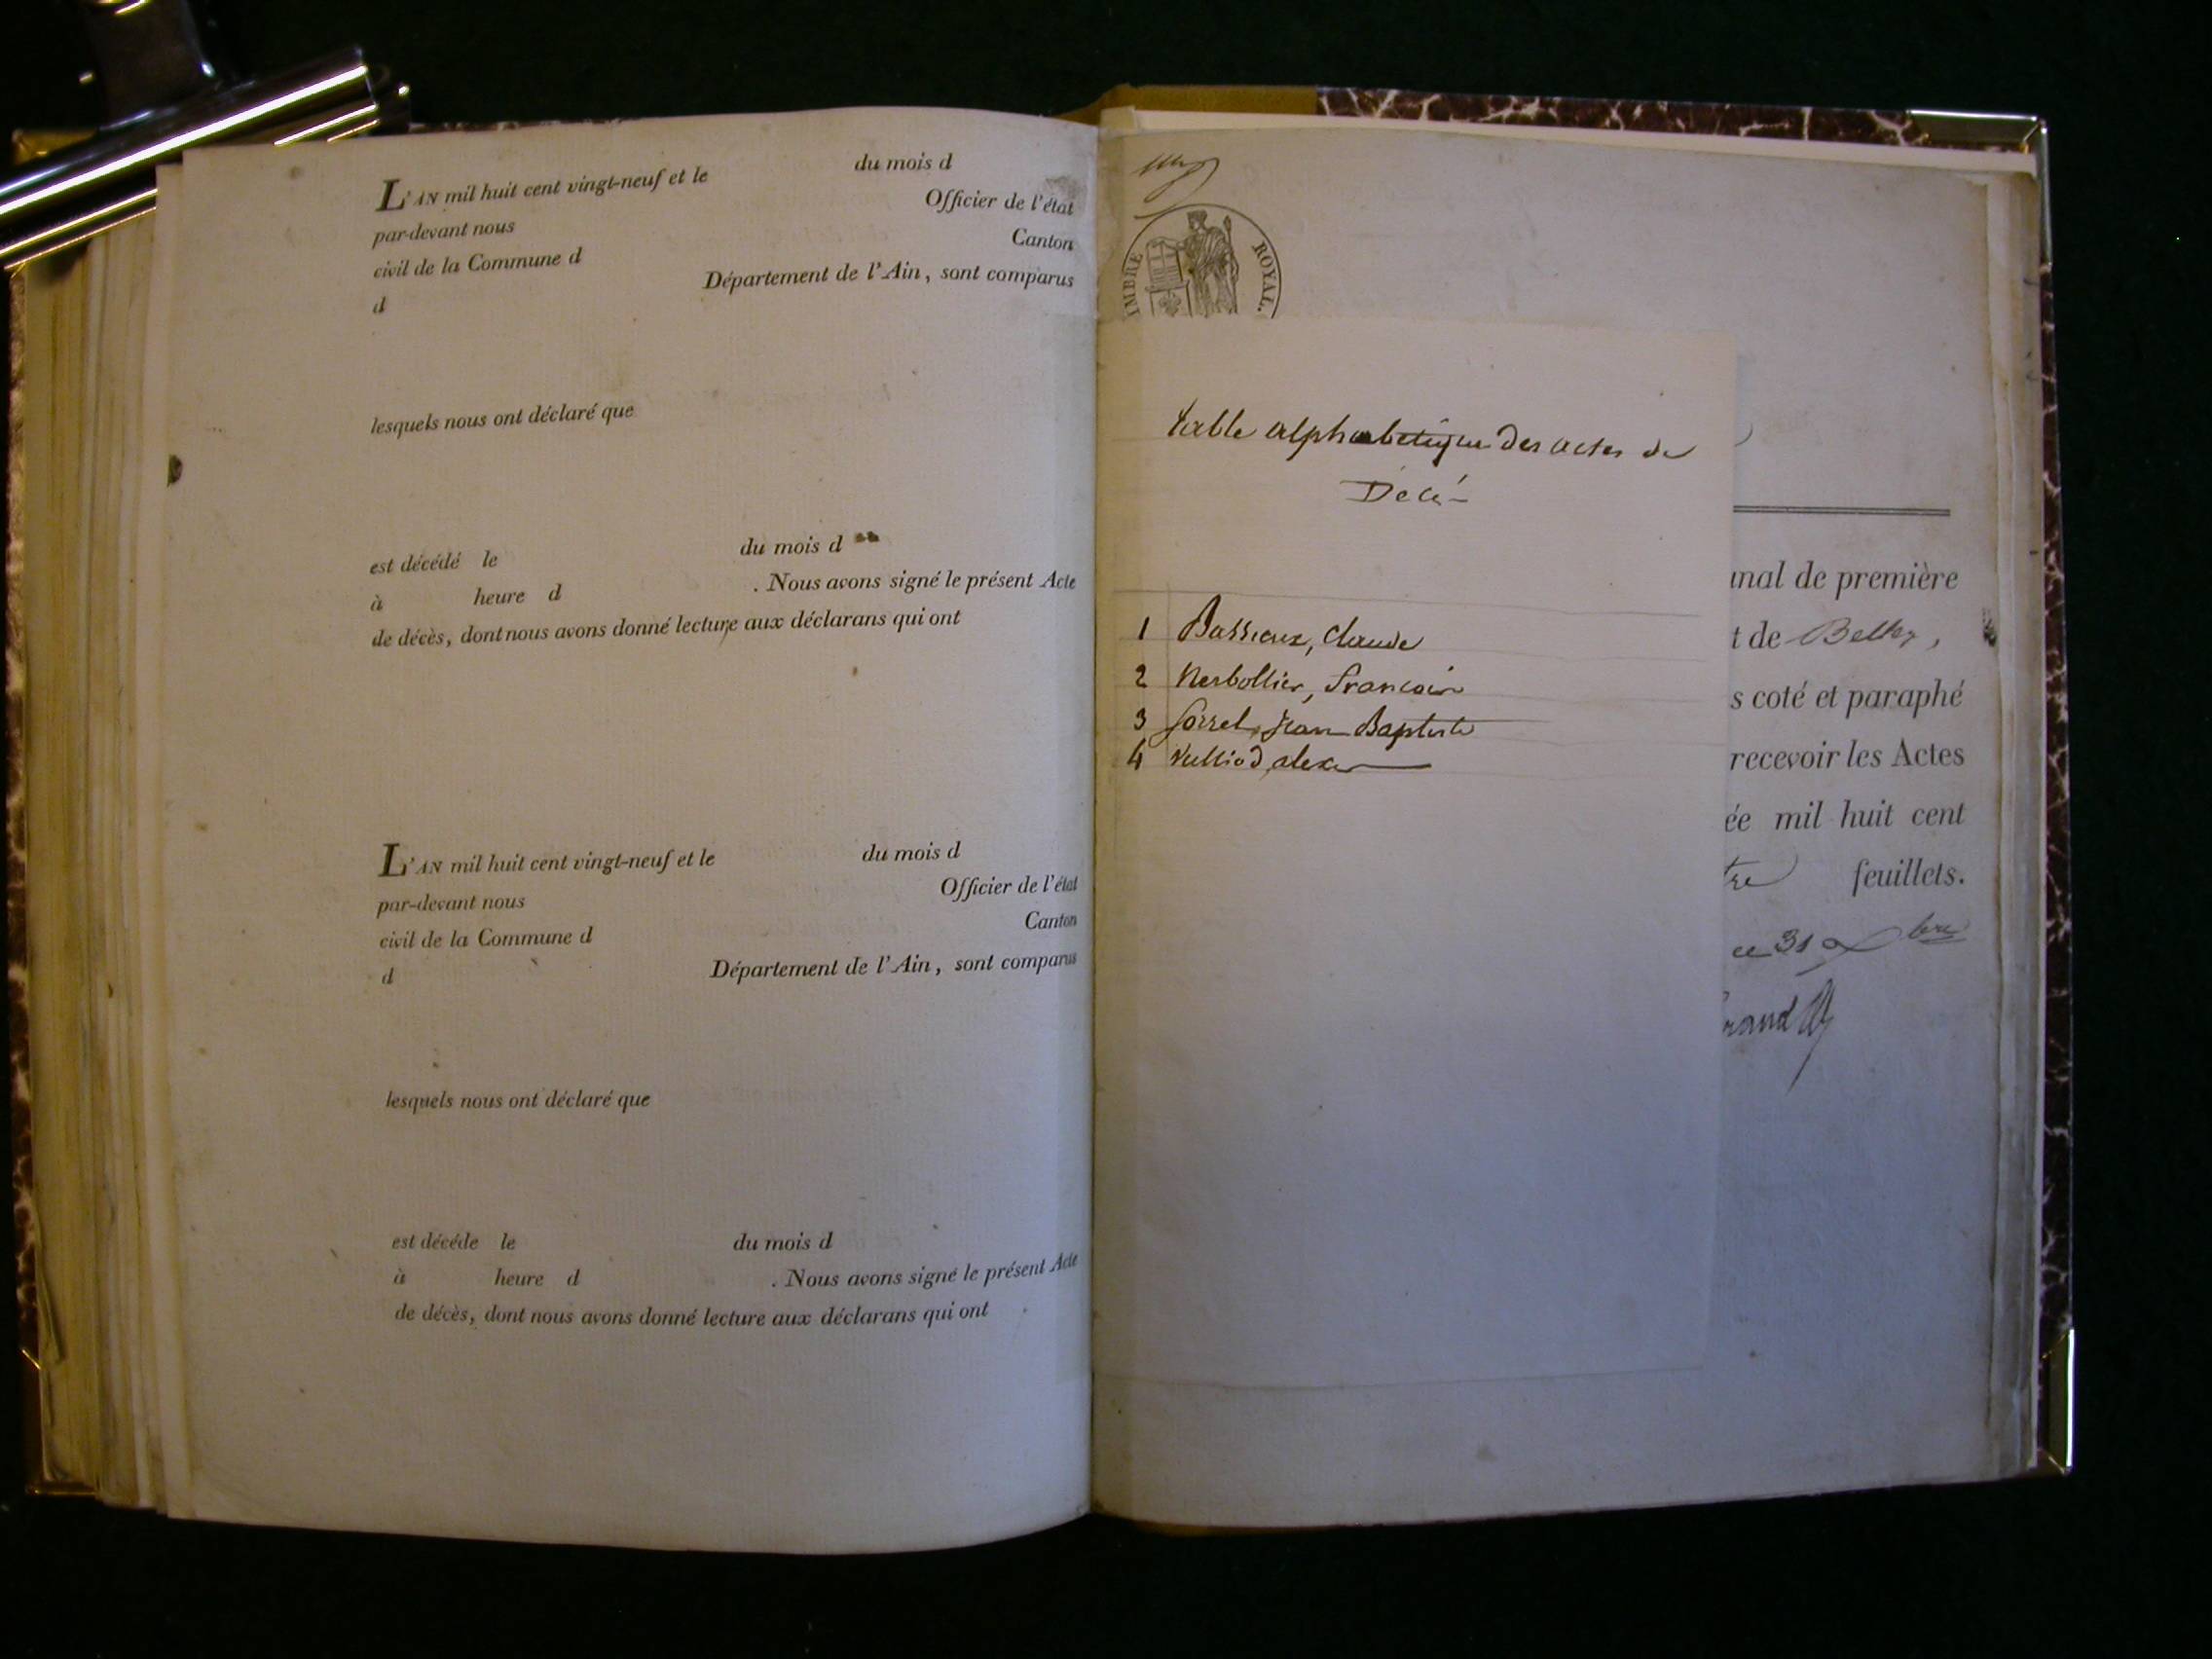 L'AN mil huit cent vingt-neuf et le du mois d
par-devant nous Officier de l'état
civil de la Commune d Canton
d Département de l'Ain, sont comparus
lesquels nous ont déclaré que
est décédé le du mois d
à heure d . Nous avons signé le présent Acte
de décès, dont nous avons donné lecture aux déclarans qui ont
L'AN mil huit cent vingt-neuf et le du mois d
par-devant nous Officier de l'état
civil de la Commune d Canton
d Département de l'Ain, sont comparus
lesquels nous ont déclaré que
est décéde le du mois d
à heure d . Nous avons signé le présent Acte
de décès, dont nous avons donné lecture aux déclarans qui ont
IMBRE ROYAL.
table alphabetique des actes de
Décé
1 Bassieux, Claude
2 Nerbollier, francois
3 Sorrel, jean Baptiste
4 Vulliod, alex
unal de première
t de Belley,
s coté et paraphé
recevoir les Actes
ée mil huit cent
tre feuillets.
ce 31 bre
rand